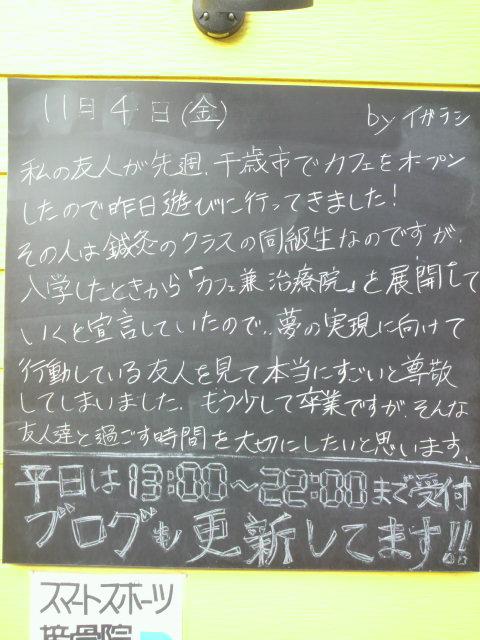 11月4日(金) by イガラシ
私の友人が先週、千歳市でカフェをオープン
したので昨日遊びに行ってきました!
その人は鍼灸のクラスの同級生なのですが、
入学したときから『カフェ兼治療院』を展開して
いくと宣言していたので‥夢の実現に向けて
行動している友人を見て本当にすごいと尊敬
してしまいました。もう少しで卒業ですが、そんな
友人達と過ごす時間を大切にしたいと思います。
平日は13:00～22:00まで受付
ブログも更新してます!!
スマートスポーツ
接骨院